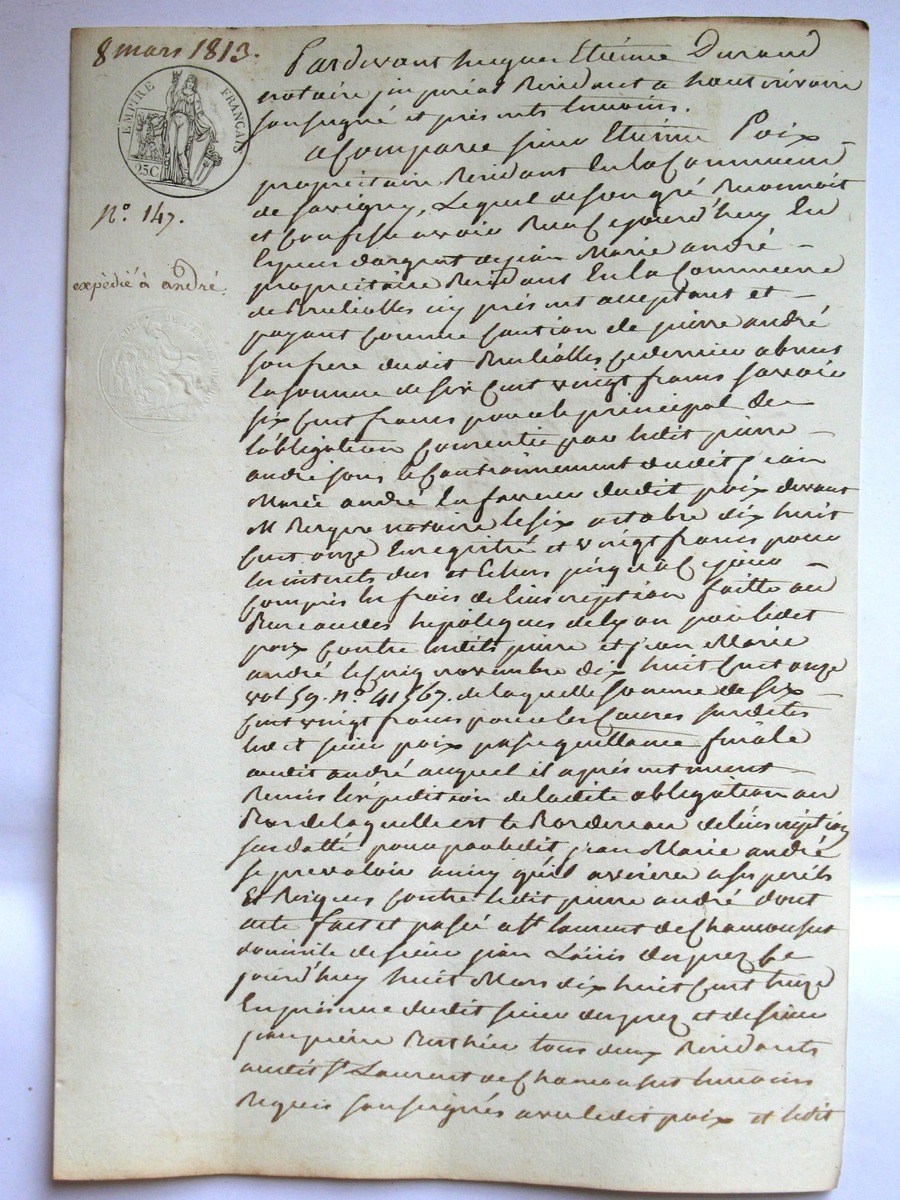 8 mars 1813.
EMPIRE FRANÇAIS
25C
N.o 147.
expédié à andré.
Pardevant hugues Etiènne Durand
notaire impérial Residant a haut rivoire
soussigné et présents temoins.
a Comparu sieur Etienne Poix
propriétaire Residant En la Commune
de savigny, Lequel de son gré Reconnoit
et Confesse avoir Reçu Cejourd'huy En
Especes d'argent de jean Marie andré –
propriétaire Residant En la Commune
de Brulliolles icy présent acceptant et –
payant comme caution de pierre andré
son frere dudit Brulliolles ce dernier absent
la somme de six Cent vingt francs savoir
six Cent francs pour le principal de
l'obligation Consentie par ledit pierre –
andré sous le Cautionnement dudit jean
Marie andré En faveur dudit poix devant
M.e notaire le six octobre dix huit
Cent onze Enregistré et vingt francs pour
les interets dus et Echus jusqu'a Ce jour –
compris les frais de l'inscription faitte au
Bureau des hipoteques de Lyon par ledit
poix Contre lesdits pierre et jean Marie
andré le cinq novembre dix huit Cent onze
vol 59. n.o 41567. de laquelle somme de six –
Cent vingt francs pour les Causes susdites
ledit sieur poix passe quittance finale
audit andré auquel il a présentement –
Remis l'expédition de ladite obligation au
Bas de laquelle est le Bordereau de l'inscription
sus datté pour par ledit jean Marie andré
se prevaloir ainsy qu'il avisera a ses perils
Et Risques contre ledit pierre andré dont
acte fait et passé a St. Laurent de Chamousset
domicile de sieur jean Louis Ce
jourd'huy huit Mars dix huit Cent treize
En présence dudit sieur et de sieur
jean pierre Berthier tous deux Residants
audit St. Laurent de Chamousset temoins
Requis soussignés avec ledit poix et ledit